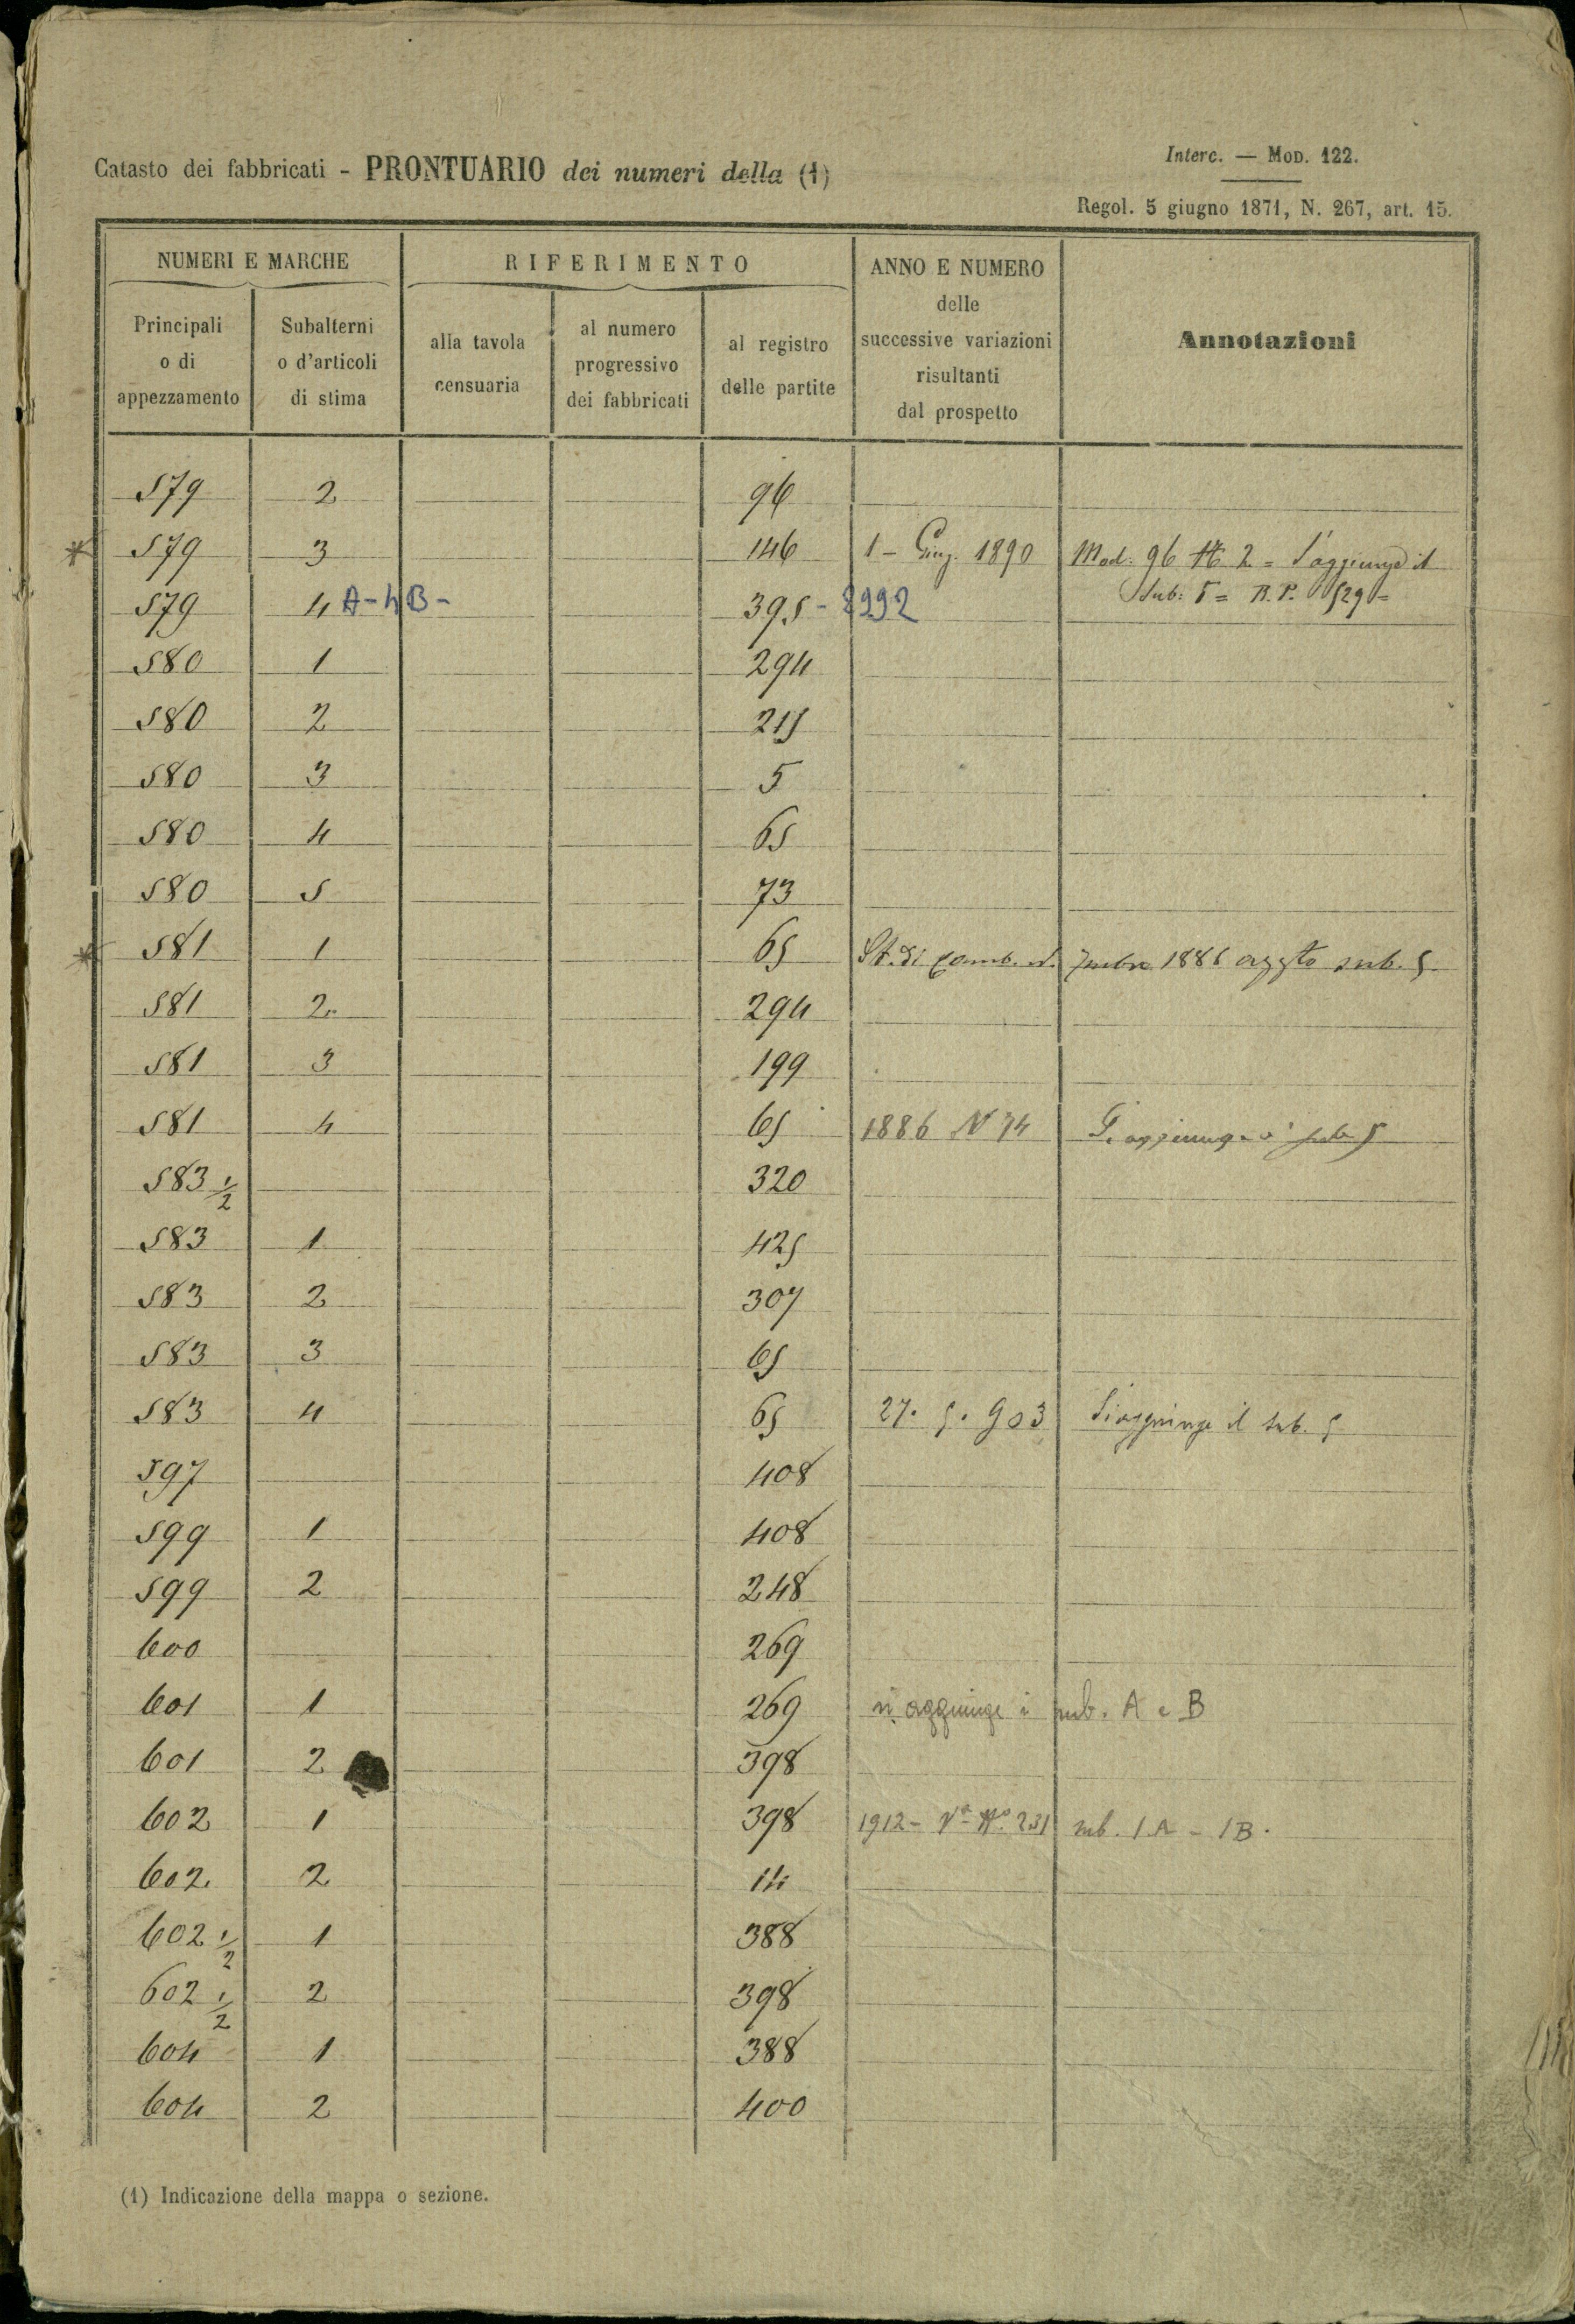 Catasto dei fabbricati - PRONTUARIO dei numeri della (1)
Interc. — Mod. 122.
Regol. 5 giugno 1871, N. 267, art. 15.
NUMERI E MARCHE
RIFERIMENTO
ANNO E NUMERO delle successive variazioni risultanti dal prospetto
Annotazioni
Principali o di appezzamento
Subalterni o d'articoli di stima
alla tavola censuaria
al numero progressivo dei fabbricati
al registro delle partite
579 2 96
* 579 3 146 1 - Giug. 1890 Mod: 96 N 2 = S'aggiunge il
Sub: 5 = R.P. 529 =
579 4 A - 4 B - 395 - 2992
580 1 294
580 2 215
580 3 5
580 4 65
580 5 73
* 581 1 65 St. di camb. 1886 sub. 5.
581 2 294
581 3 199
581 4 65 1886 N 74 Si aggiunge sub 5
583 1/2 320
583 1 425
583 2 307
583 3 65
583 4 65 27. 5. 903 Si aggiunge il sub. 5
597 408
599 1 408
599 2 248
600 269
601 1 269 si aggiunge i sub. A e B
601 2 398
602 1 398 1912 - Va No. 231 sub. 1A - 1B.
602 2 14
602 1/2 1 388
602 1/2 2 398
604 1 388
604 2 400
(1) Indicazione della mappa o sezione.